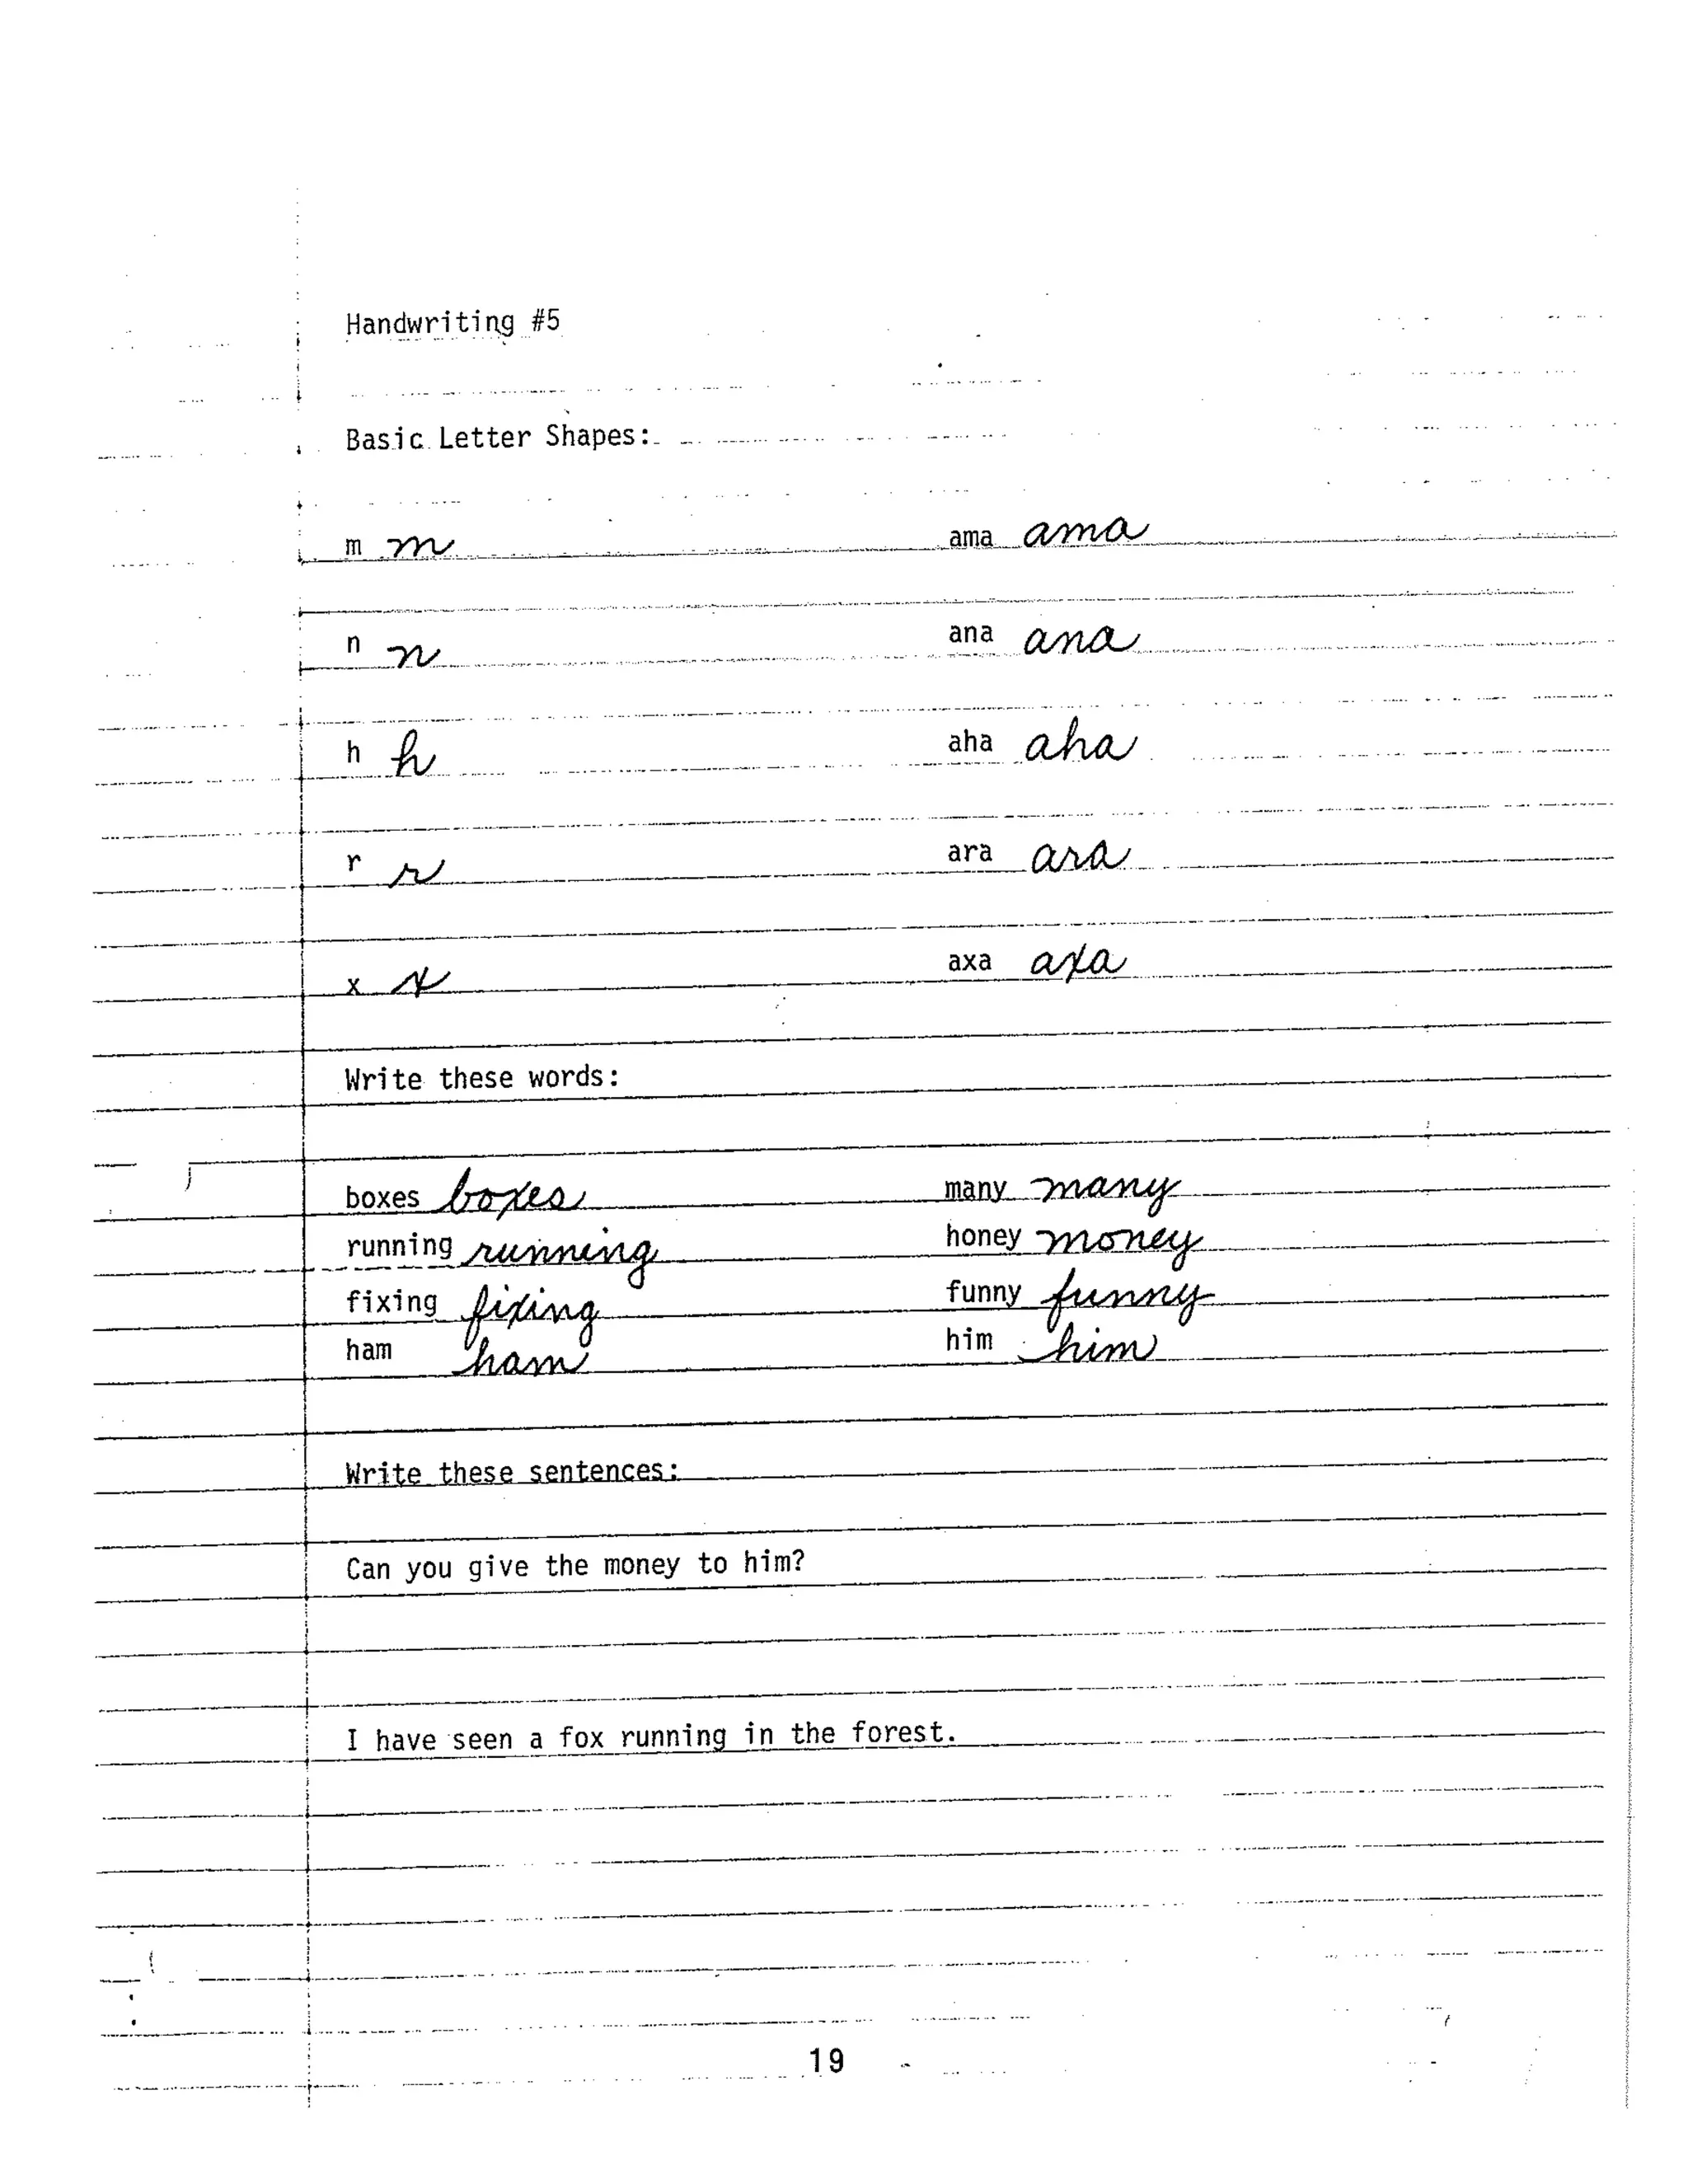 Handwriting #5
Basic Letter Shapes:
m m ama ama
n n ana ana
h h aha aha
r r ara ara
x x axa axa
Write these words:
boxes boxes many many
running running honey money
fixing fixing funny funny
ham ham him him
Write these sentences:
Can you give the money to him?
I have seen a fox running in the forest.
19